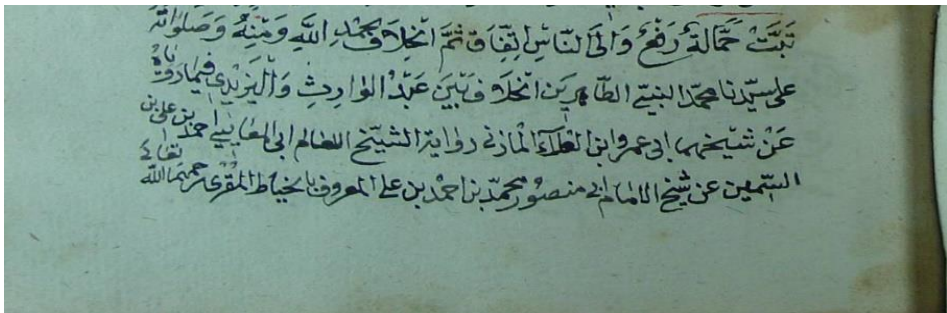 تبت حمالة رفع وإلى الناس اتفاق ثم الخلاف بحمد الله ومنه وصلواته
على سيدنا محمد النبي الطاهرين الخلاف بين عبد الوارث واليزيدي فيما روياه
عن شيخهما ابي عمرو ابن العلاء المازني رواية الشيخ العالم ابي المعالي احمد بن علي بن
السمين عن شيخ الامام ابي منصور محمد بن احمد بن علي المعروف بالخياط المقرئ رحمهما الله تعالى